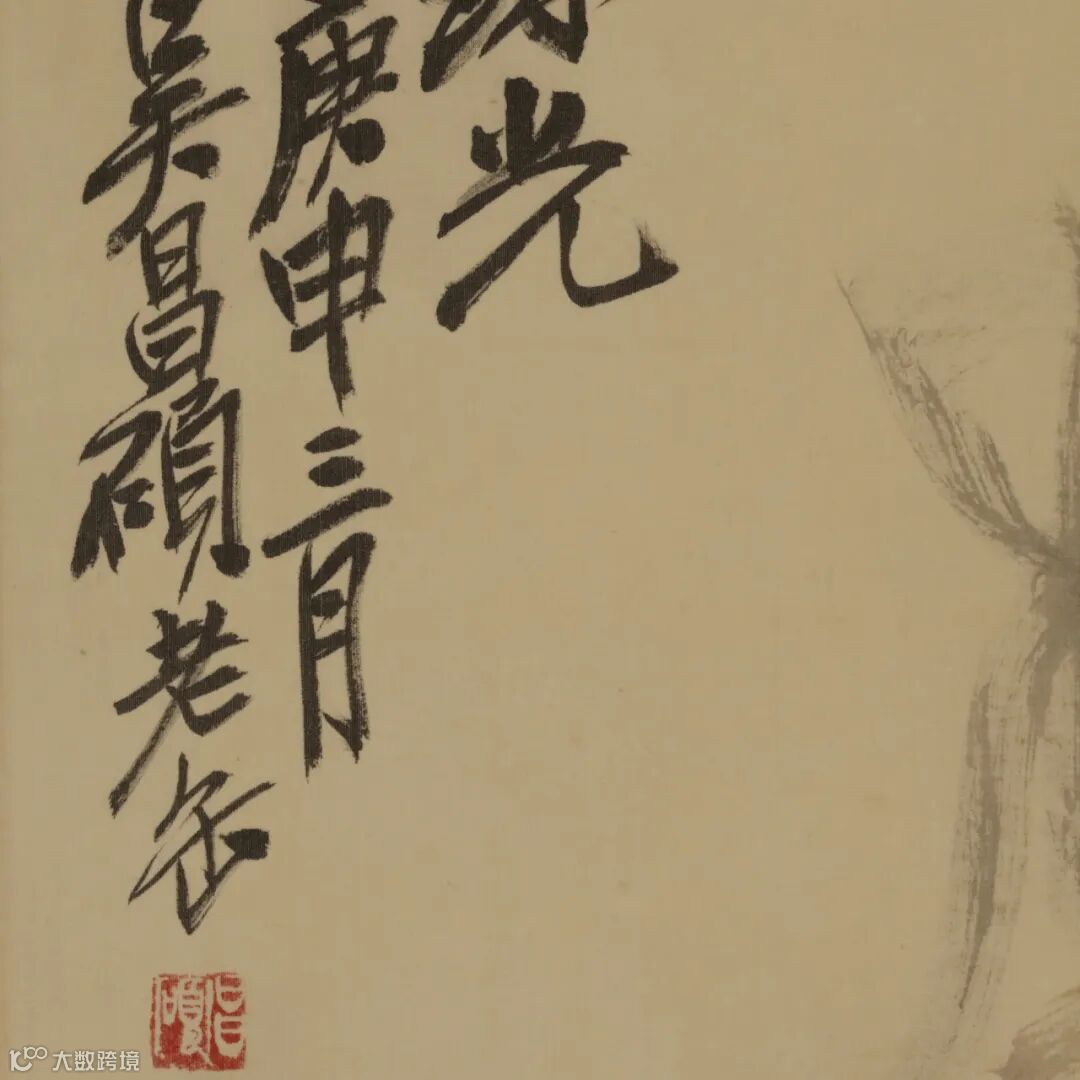 光
庚申三月
吴昌碩老缶
昌碩
大数跨境